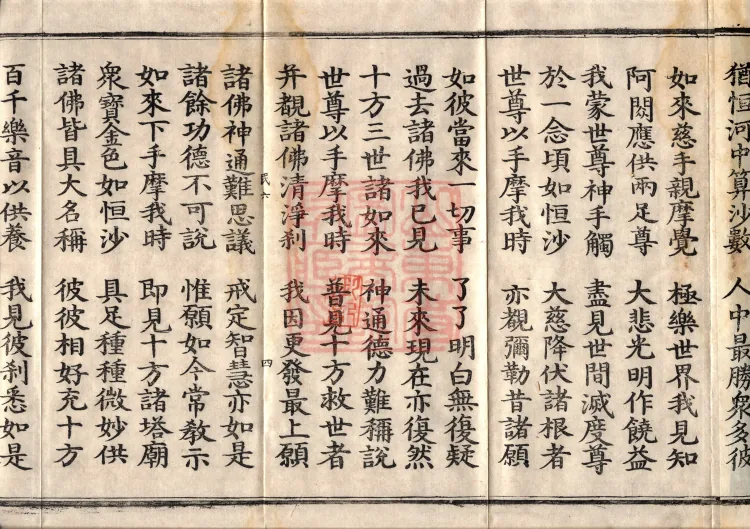 猶恒河中算沙數 人中最勝衆多彼
如來慈手親摩覺 極樂世界我見知
阿閦應供兩足尊 大悲光明作饒益
我蒙世尊神手觸 盡見世間滅度尊
於一念頃如恒沙 大慈降伏諸根者
世尊以手摩我時 亦覩彌勒昔諸願
如彼當來一切事 了了明白無復疑
過去諸佛我已見 未來現在亦復然
十方三世諸如來 神通德力難稱說
世尊以手摩我時 普見十方救世者
并覩諸佛清淨刹 我因更發最上願
四
諸佛神通難思議 戒定智慧亦如是
諸餘功德不可說 惟願如今常教示
如來下手摩我時 即見十方諸塔廟
衆寶金色如恒沙 具足種種微妙供
諸佛皆具大名稱 彼彼相好充十方
百千樂音以供養 我見彼刹悉如是